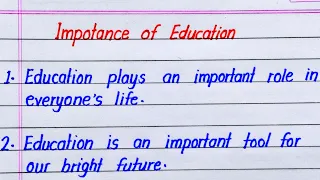 Impotance of Education
1. Education plays an important role in
everyone's life.
2. Education is an important tool for
our bright future.